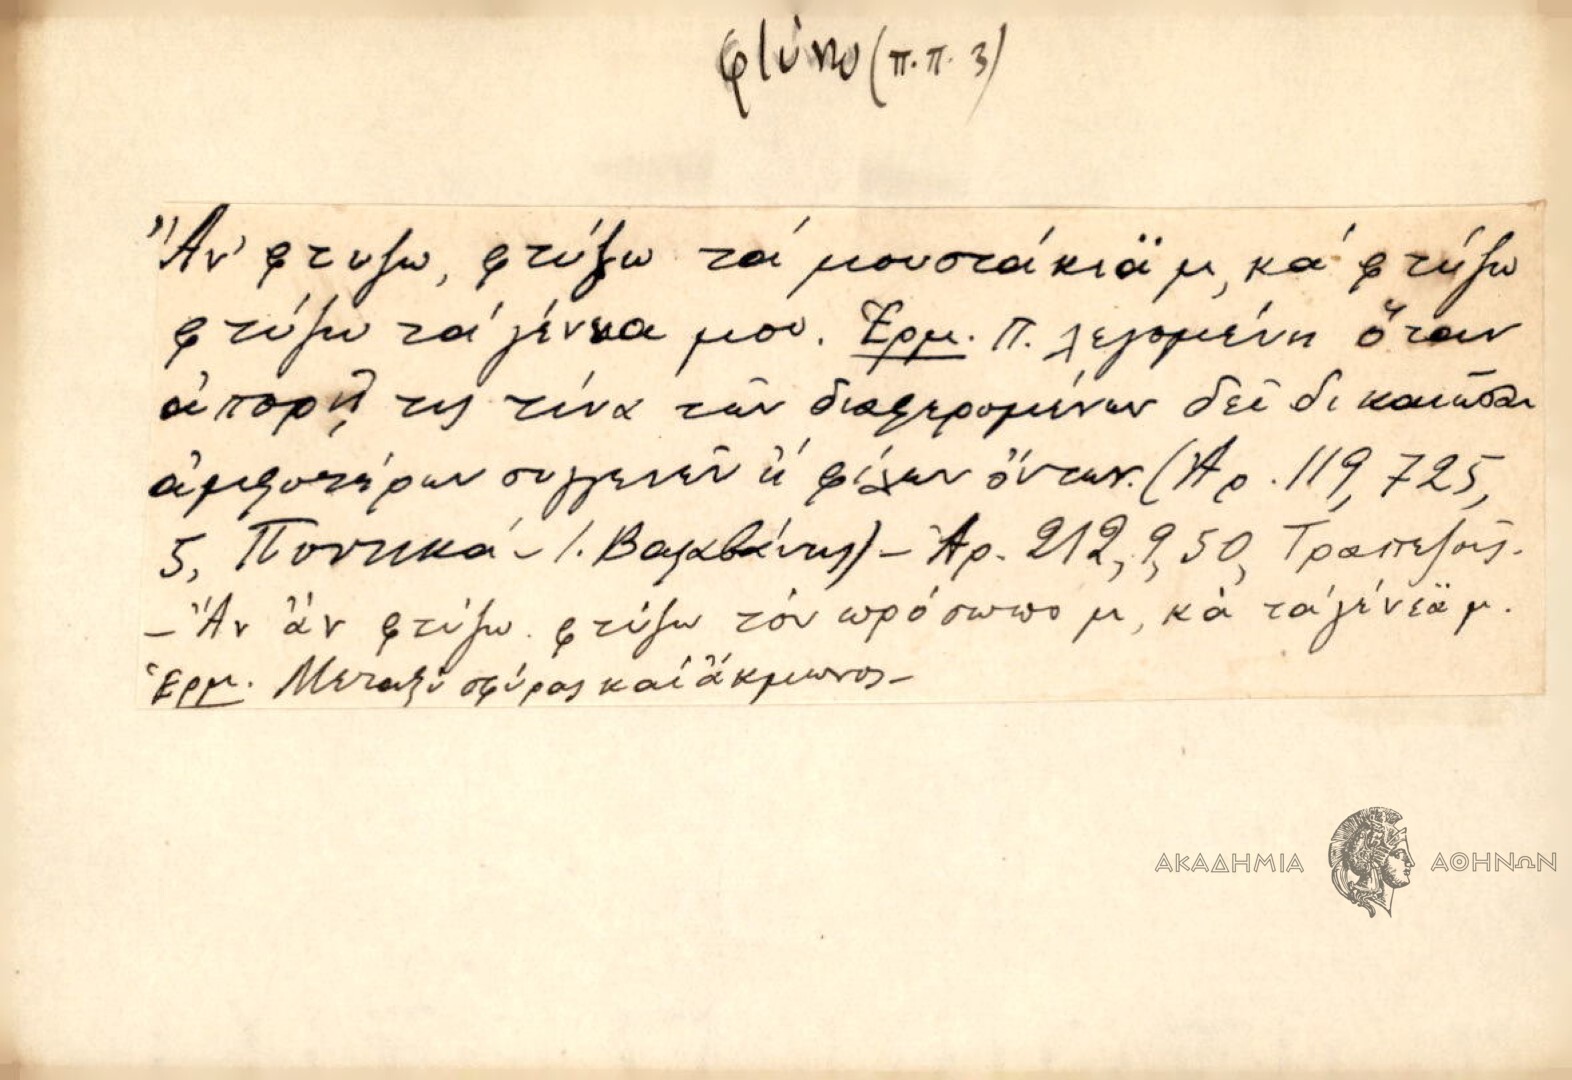 φτύνω (π.π. 3)
Ἂν' φτυζω, φτύζω τά μουστάκιᾰ μ, κά φτύζω
φτύζω τά γένεα μου. Ἑρμ. Π. λεγομένη ὅταν
ἀπορῇ τις τίνα τῶν διαφερομένων δεῖ δικαιῶσαι
ἀμφοτέρων συγγενῶν ἤ φίλων ὄντων. (Ἀρ. 119, 725,
5, Ποντικά - Ι. Βαλαβάνης) - Ἀρ. 212, 9, 50, Τραπεζοῦς.
- Ἄν ἄν φτύζω φτύζω τόν πρόσωπο μ, κὰ τά γένεᾰ μ.
Ἑρμ. Μεταξύ σφύρας καί ἄκμωνος -
ΑΚΑΔΗΜΙΑ ΑΘΗΝΩΝ